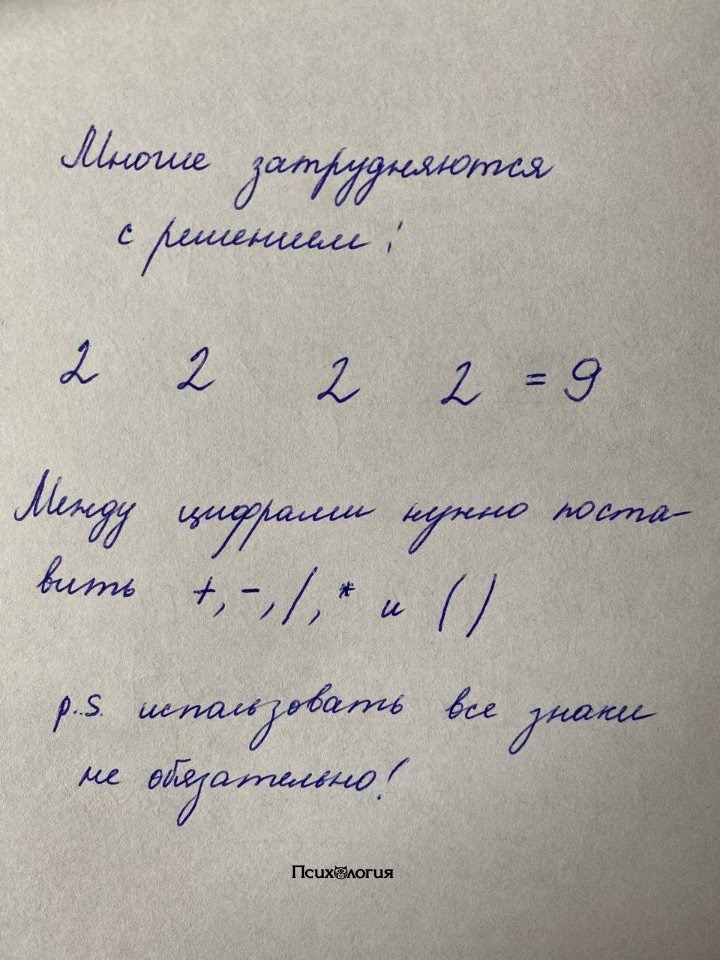 Многие затрудняются
с решением:
2 2 2 2 = 9
Между цифрами нужно поста-
вить +, -, /, * и ( )
p.s. использовать все знаки
не обязательно!
Психология